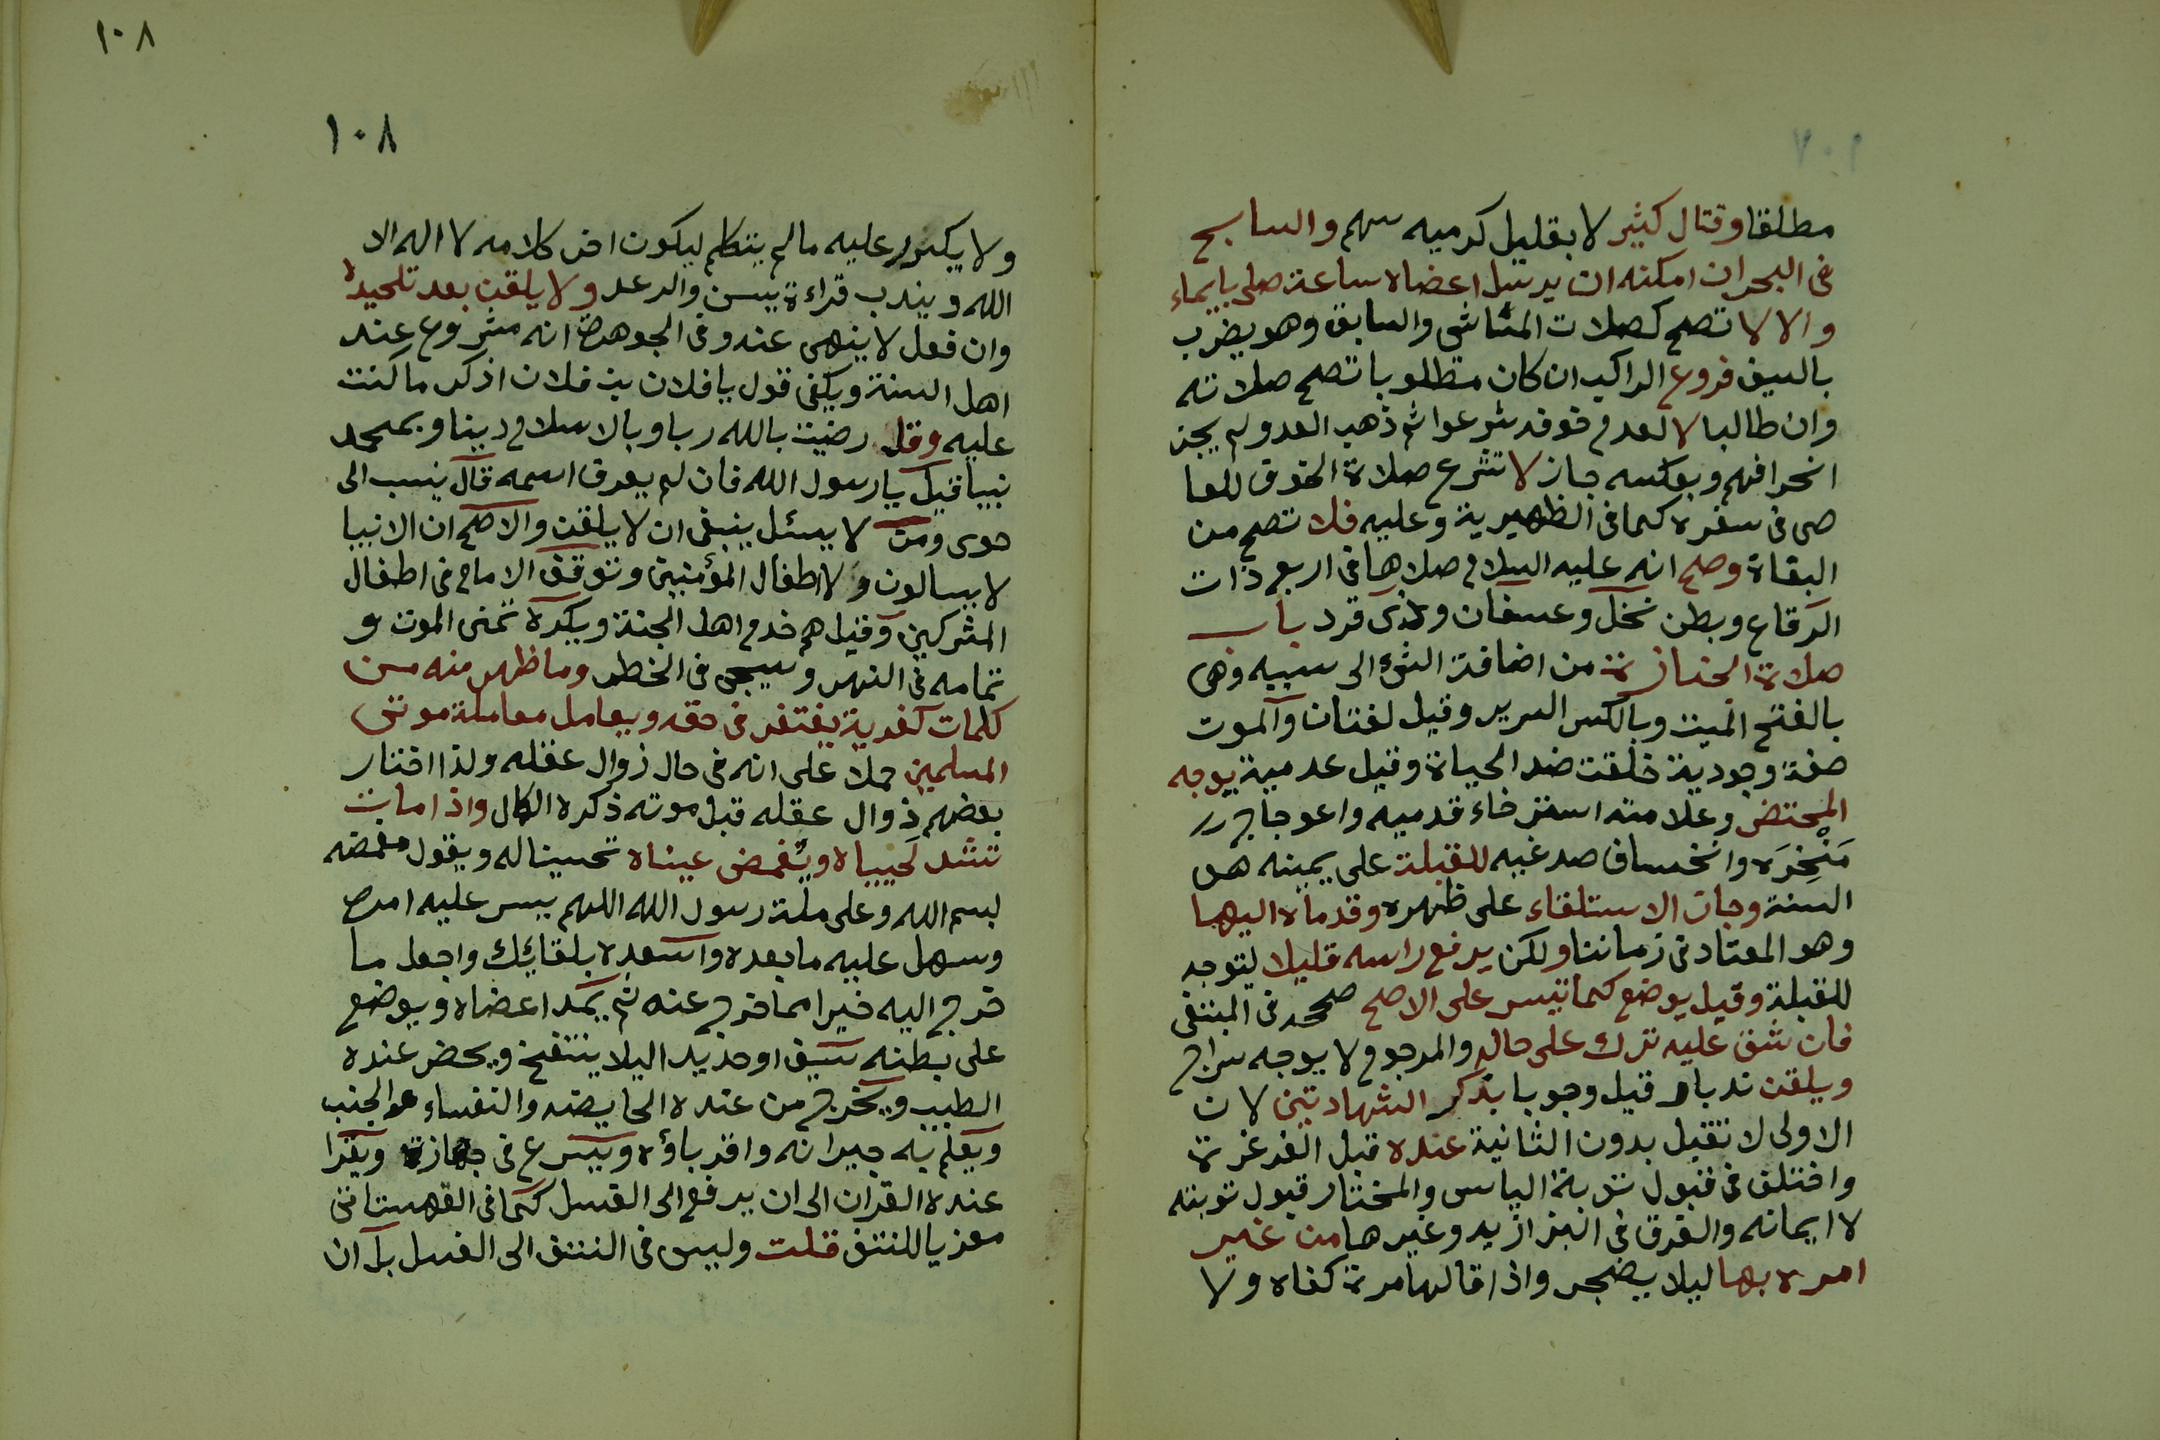 مطلقا وقتال كثير لا بقليل كرميه سهم والسابح
فى البحر ان امكنه ان يرسل اعضاه ساعة صلى بايماء
والا لا تصح كصلات الماشى والسابق وهو يضرب
بالسيف فروع الراكب ان كان مطلوبا تصح صلاته
وان طالبا لا لعدم خوفه شرعوا ثم ذهب العدو لم يجز
انحرافهم وبعكسه جاز لا تشرع صلاة الخوف للعا
صى فى سفره كما فى الظهيرية وعليه فلا تصح من
البغاة وصح انه عليه السلام صلاها فى اربع ذات
الرقاع وبطن نخل وعسفان وذى قرد باب
صلاة الجنازة من اضافة الشئ الى سببه وهى
بالفتح الميت وبالكسر السرير وقيل لغتان والموت
صفة وجودية خلقت ضد الحياة وقيل عدمية يوجه
المحتضر وعلامته استرخاء قدميه واعوجاج
منخره وانخساف صدغيه للقبلة على يمينه هو
السنة وجاز الاستلقاء على ظهره وقدماه اليها
وهو المعتاد فى زماننا ولكن يرفع راسه قليلا ليتوجه
للقبلة وقيل يوضع كما تيسر على الاصح صححه فى المبتغى
فان شق عليه ترك على حاله والمرجوم لا يوجه سراج
ويلقن ندبا وقيل وجوبا بذكر الشهادتين لان
الاولى لا تقبل بدون الثانية عنده قبل الغرغرة
واختلف فى قبول توبة الياس والمختار قبول توبته
لا ايمانه والفرق فى البزازيه وغيرها من غير
امره بها ليلا يضجر واذا قالها مرة كفاه ولا
١٠٨
١٠٨
ولا يكرر عليه مالم يتكلم ليكون اخر كلامه لا اله الا
الله ويندب قراءة يسن والرعد ولا يلقن بعد تلحيده
وان فعل لا ينهى عنه وفى الجوهرة انه مشروع عند
اهل السنة ويكفى قول يا فلان بن فلان اذكر ما كنت
عليه وقل رضيت بالله ربا وبالاسلام دينا وبمحمد
نبيا قيل يا رسول الله فان لم يعرف اسمه قال ينسب الى
حوى ومن لا يسئل ينبغى ان لا يلقن والاصح ان الانبيا
لا يسالون ولا اطفال المؤمنين وتوقف الامام فى اطفال
المشركين وقيل هم خدم اهل الجنة ويكره تمنى الموت و
تمامه فى النهر وسيجى فى الخطر وما ظهر منه من
كلمات كفرية يغتفر فى حقه ويعامل معاملة موتى
المسلمين حملا على انه فى حال زوال عقله ولذا اختار
بعضهم زوال عقله قبل موته ذكره الكال واذا مات
تشد لحيياه ويغمض عيناه تحسينا له ويقول مغمضه
بسم الله وعلى ملة رسول الله اللهم يسر عليه امره
وسهل عليه ما بعده واسعده بلقائك واجعل ما
خرج اليه خيرا مما خرج عنه ثم يمد اعضاه ويوضع
على بطنه سيف او حديد اليلا ينتفخ ويحضر عنده
الطيب ويخرج من عنده الحايضه والنفساء والجنب
ويعلم به جيرانه واقرباؤه ويسرع فى جهازه ويقرا
عنده القران الى ان يرفع الى الغسل كما فى القهستانى
معزيا للنتف قلت وليس فى النتف الى الغسل بل ان